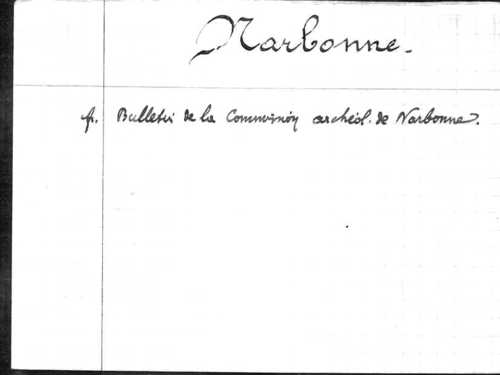 Narbonne.
fr. Bulletin de la Commission archéol. de Narbonne.